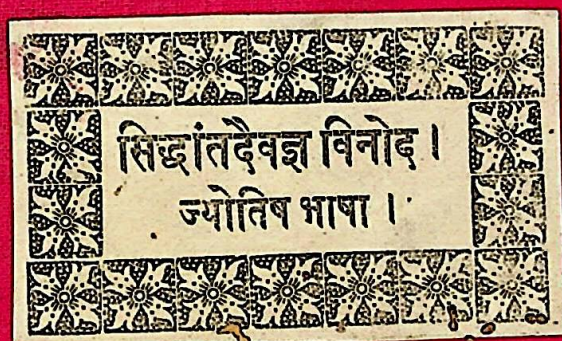 सिद्धांतदैवज्ञ विनोद।
ज्योतिष भाषा।